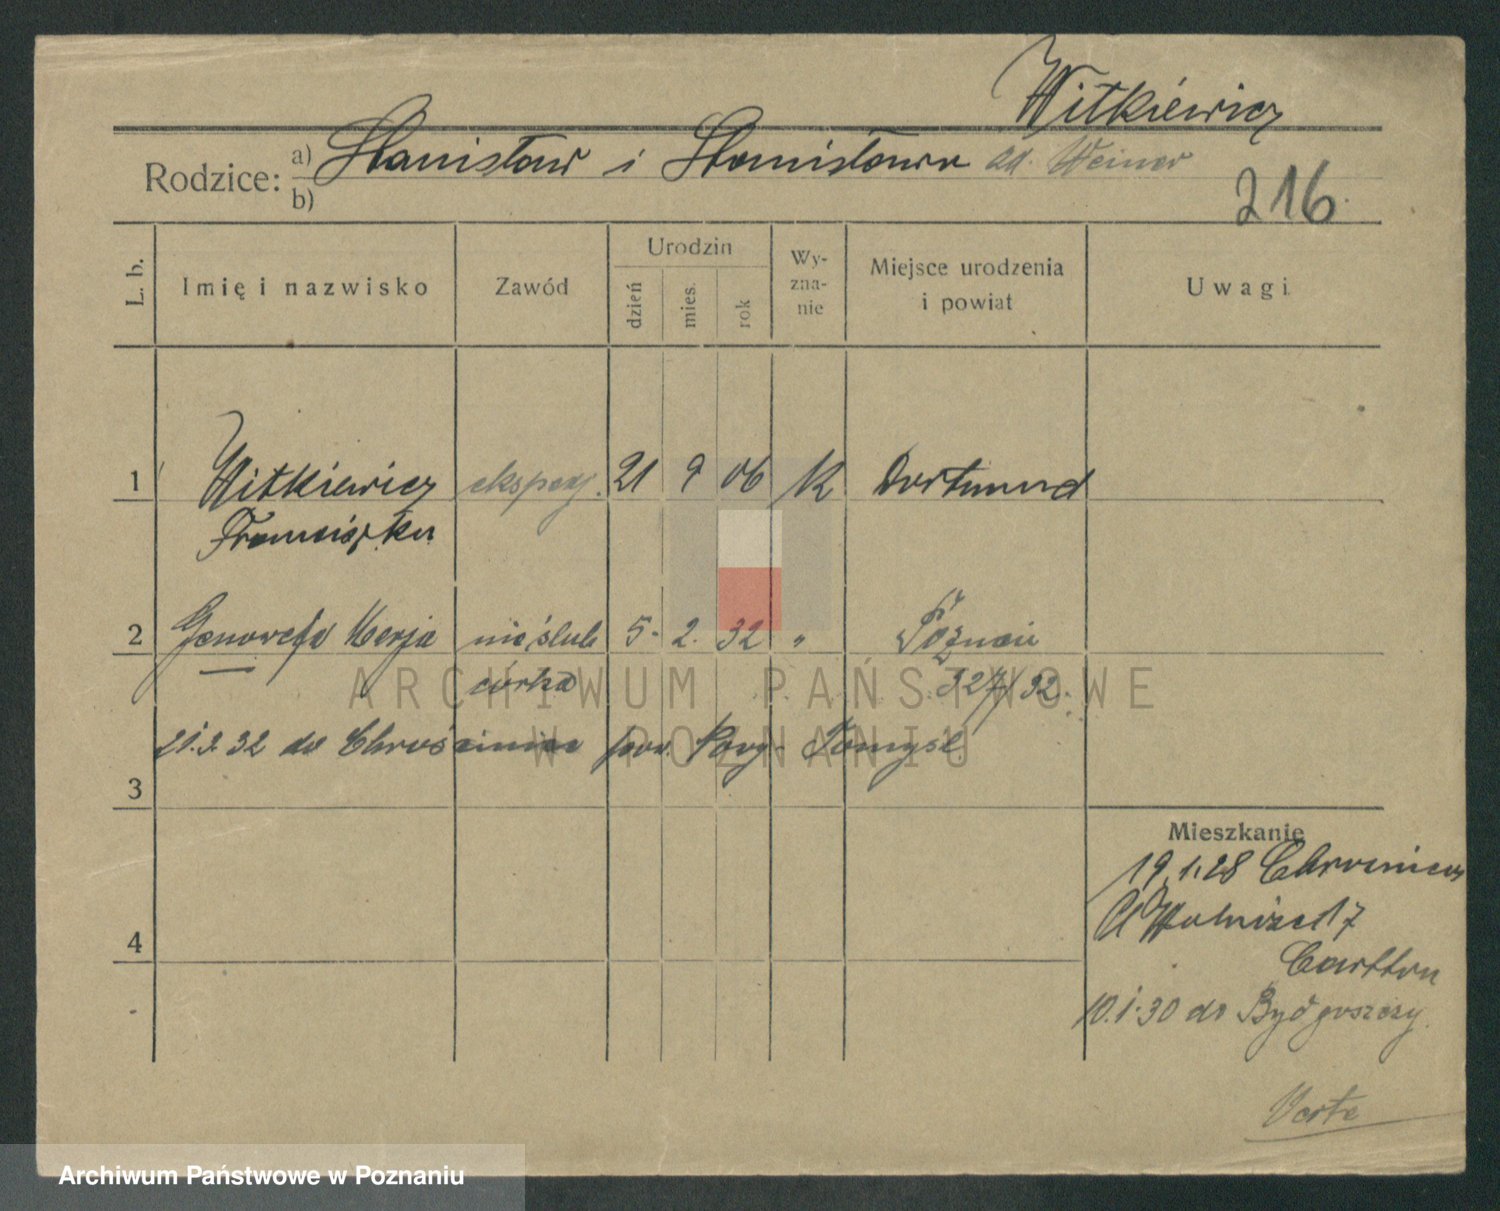 Witkiewicz
Rodzice: a) Stanisław i Stanisława
b)
216
L. b. Imię i nazwisko Zawód Urodzin dzień mies. rok Wy-zna-nie Miejsce urodzenia i powiat Uwagi
1 Witkiewicz eksped. 21 9 06 K Dortmund
Franciszka
2 Genowefa Marja nieślub 5. 2. 32 " Poznań
córka 327/32.
21.3.32 do pow. Nowy Tomyśl
3
Mieszkanie
19.1.28
4
17
10.1.30 do Bydgoszczy
Verte
ARCHIWUM PAŃSTWOWE
W POZNANIU
Archiwum Państwowe w Poznaniu